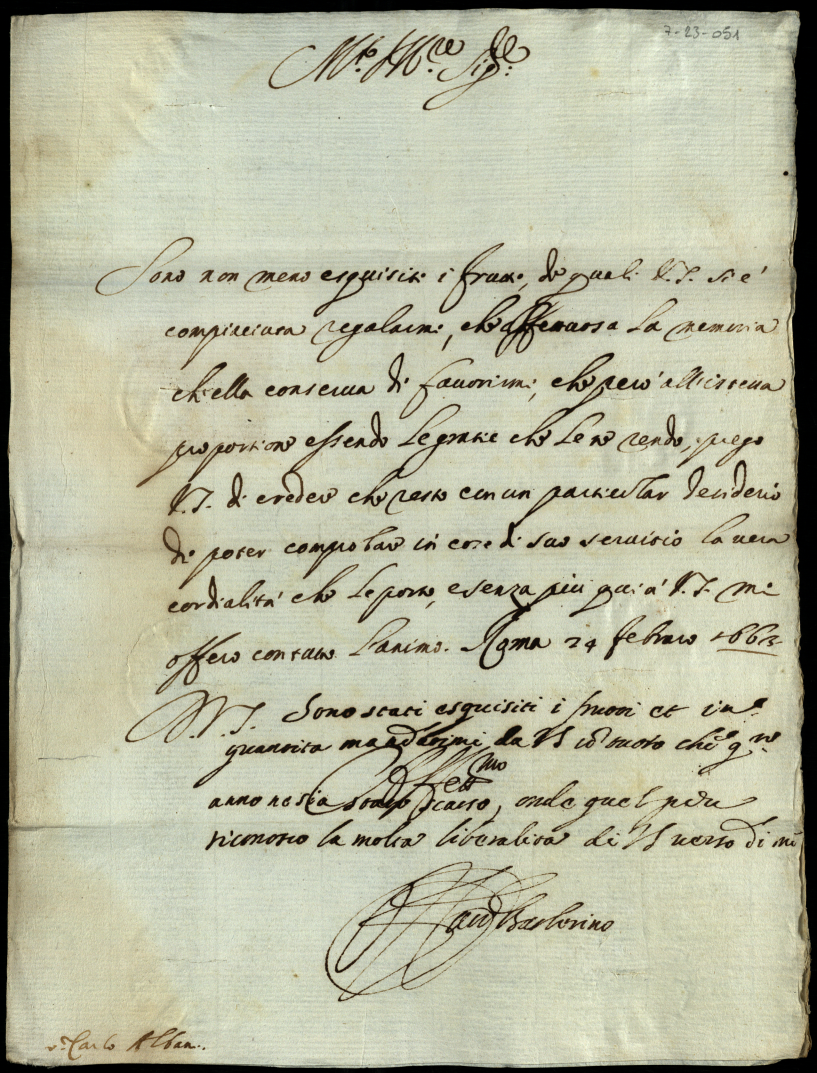 7-23-051
M.to Ill.re Sig.re
Sono non meno esquisiti i frutti, de quali V.S. si é
compiaciuta regalarmi, che affettuosa la memoria
ch'ella conserua di fauorirmi, che peró all'istessa
proportione essendo le gratie che le ne rendo, prego
V.S. di creder che resto con un particular desiderio
di poter comprobare in cose di suo seruitio la uera
cordialitá che le porto, e senza piú qui á V.S. mi
offero con tutto l'animo. Roma 24 febraro 1663
D.V.S. Sono stati esquisiti i frutti et in
quantita mandatimi da VS io noto che q.
anno ne sia stato scarso, onde quel piu
riconosco la molta liberalita di VS uerso di mi
Aff.mo
Card Barberino
S.r Carlo Alban.